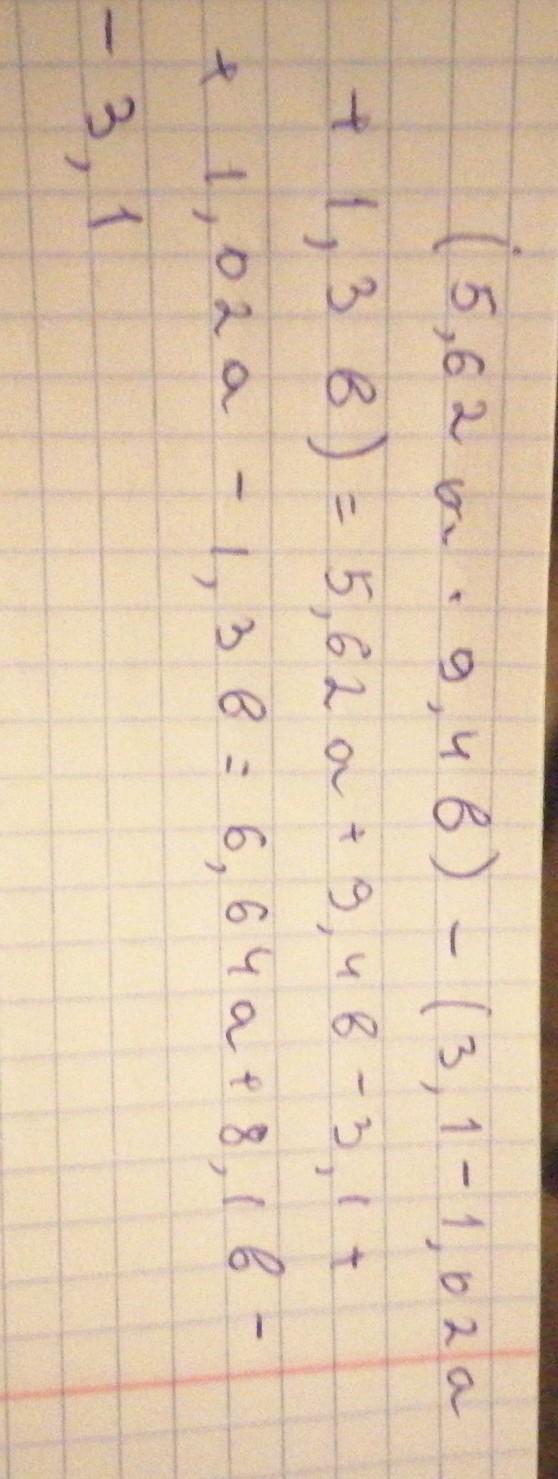 (5,62 а + 9,4 в) - (3,1 - 1,02 а
+ 1,3 в) = 5,62 а + 9,4 в - 3,1 +
+ 1,02 а - 1,3 в = 6,64 а + 8,1 в -
- 3,1